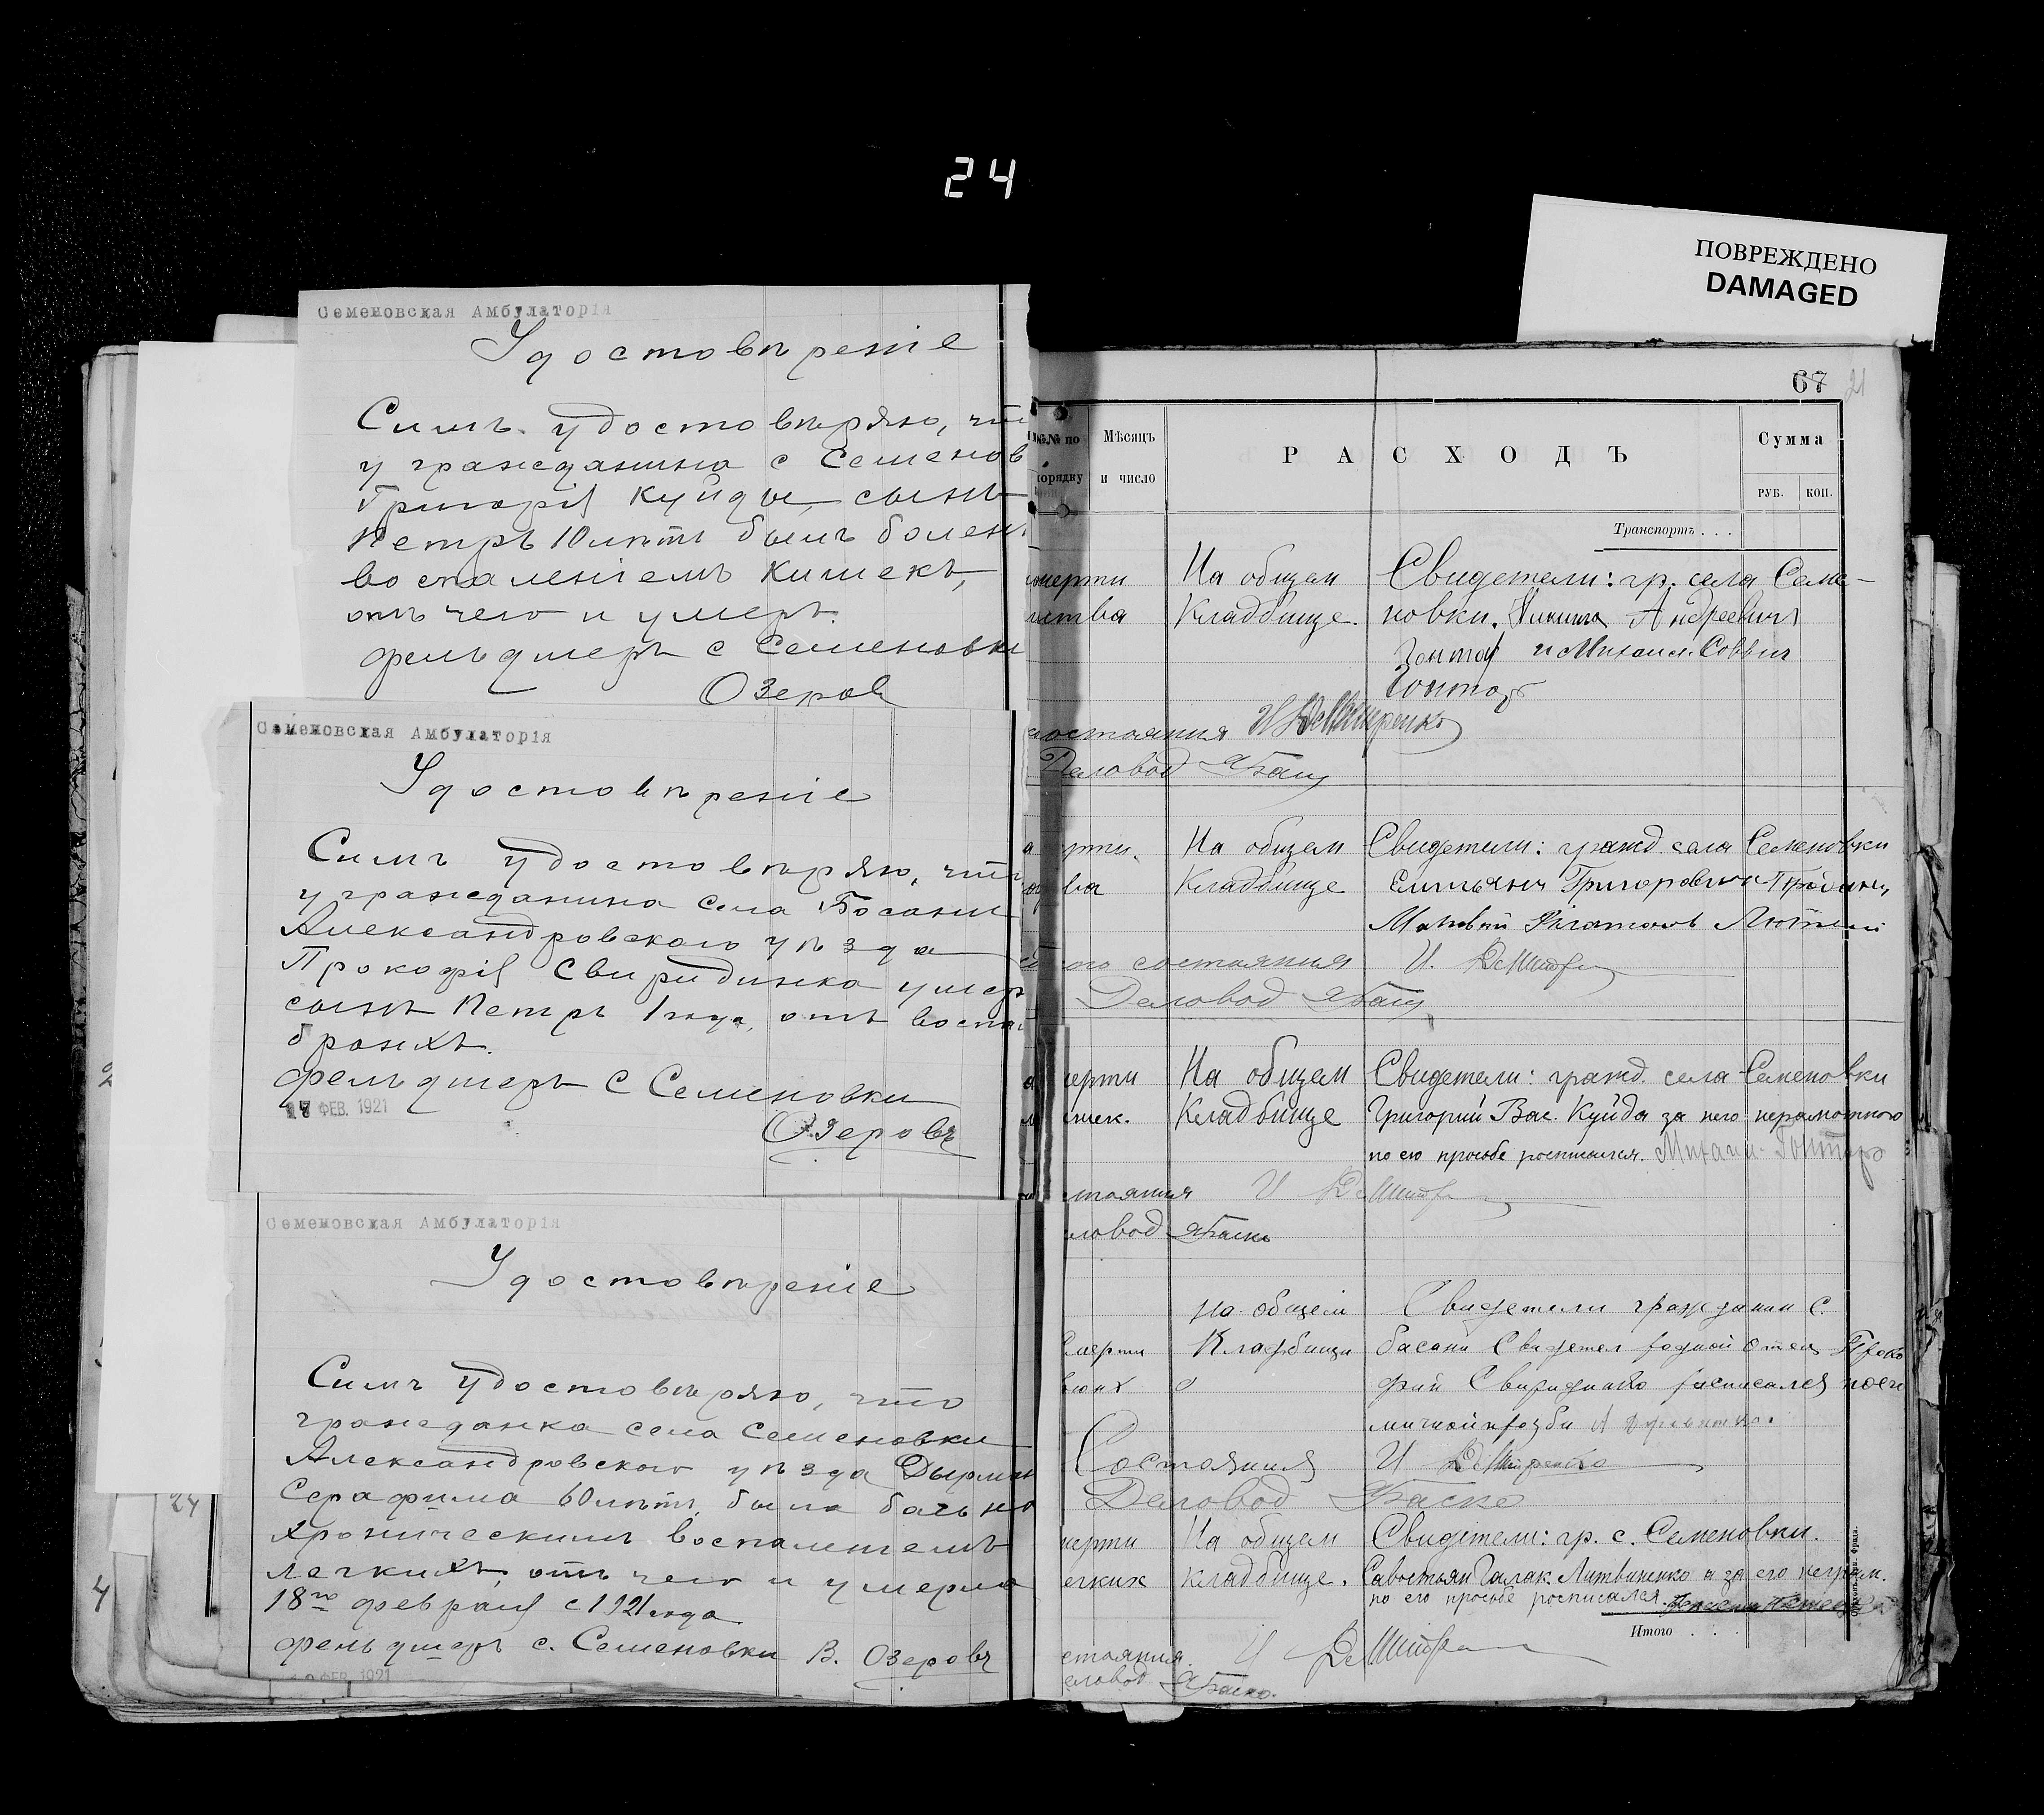 24
ПОВРЕЖДЕНО
DAMAGED
Семеновская Амбулаторія
Удостовѣреніе
Симъ удостовѣряю, что
у гражданина с Семенов
Григорія Куйды, сынъ
Петръ 10 лѣтъ былъ болен
воспаленіемъ кишекъ,
отъ чего и умеръ.
фельдшеръ с Семеновки
Озеров
Семеновская Амбулаторія
Удостовѣреніе
Симъ удостовѣряю, что
у гражданина села Басани
Александровского уѣзда
Прокофія Свиридинка умер
сынъ Петръ 1 года, отъ воспал
бронхъ.
фельдшеръ с Семеновки
17 ФЕВ. 1921
Озеровъ
Семеновская Амбулаторія
Удостовѣреніе
Симъ удостовѣряю, что
гражданка села Семеновки
Александровского уѣзда
Серафима 60 лѣтъ, была больна
хроническимъ воспаленіемъ
легкихъ, отъ чего и умерла
18го февраля с 1921 года
фельдшеръ с. Семеновки В. Озеровъ
ФЕВ. 1921
24
4
67
21
№№ по порядку
Мѣсяцъ и число
РАСХОДЪ
Сумма
РУБ.
КОП.
Транспортъ . . .
смерти На общем Свидетели: гр. села Семе-
Кладбище. новки. Никита Андреевич
Гонтар и Михаил Саввич
Гонтар
состояния И
Деловод
На общем Свидетели: гражд. села Семеновки
Кладбище Емильян Григорович
состояния И.
Деловод
мерти На общем Свидетели: гражд. села Семеновки
ишек. Кладбище Григорий Вас. Куйда за него неграмотного
по его прозьбе росписался. Михаил Гонтарь
стояния И
еловод
На общем Свидетели гражданин С.
Смерти Кладбищи басани Свидетел родной отец Проко
фий Свириденко росписался по его
личной прозьби А
Состояния И
Деловод
мерти На общем Свидетели: гр. с. Семеновки.
егких Кладбище. Савостьян Галак. Литвиненко а за его неграм.
по его прозьбе росписался.
Итого . . .
стояния. И
еловод